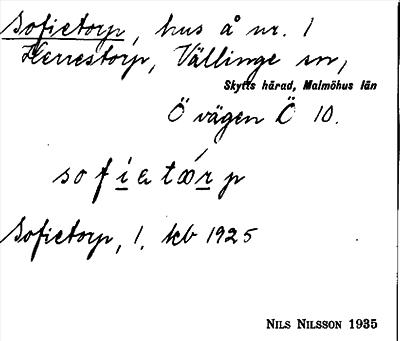 Sofietorp, hus å nr. 1
Herrestorp, Vällinge sn,
Skytts härad, Malmöhus län
Ö vägen Ö 10.
sofiɛtærp
Sofietorp, 1, kb 1925
NILS NILSSON 1935